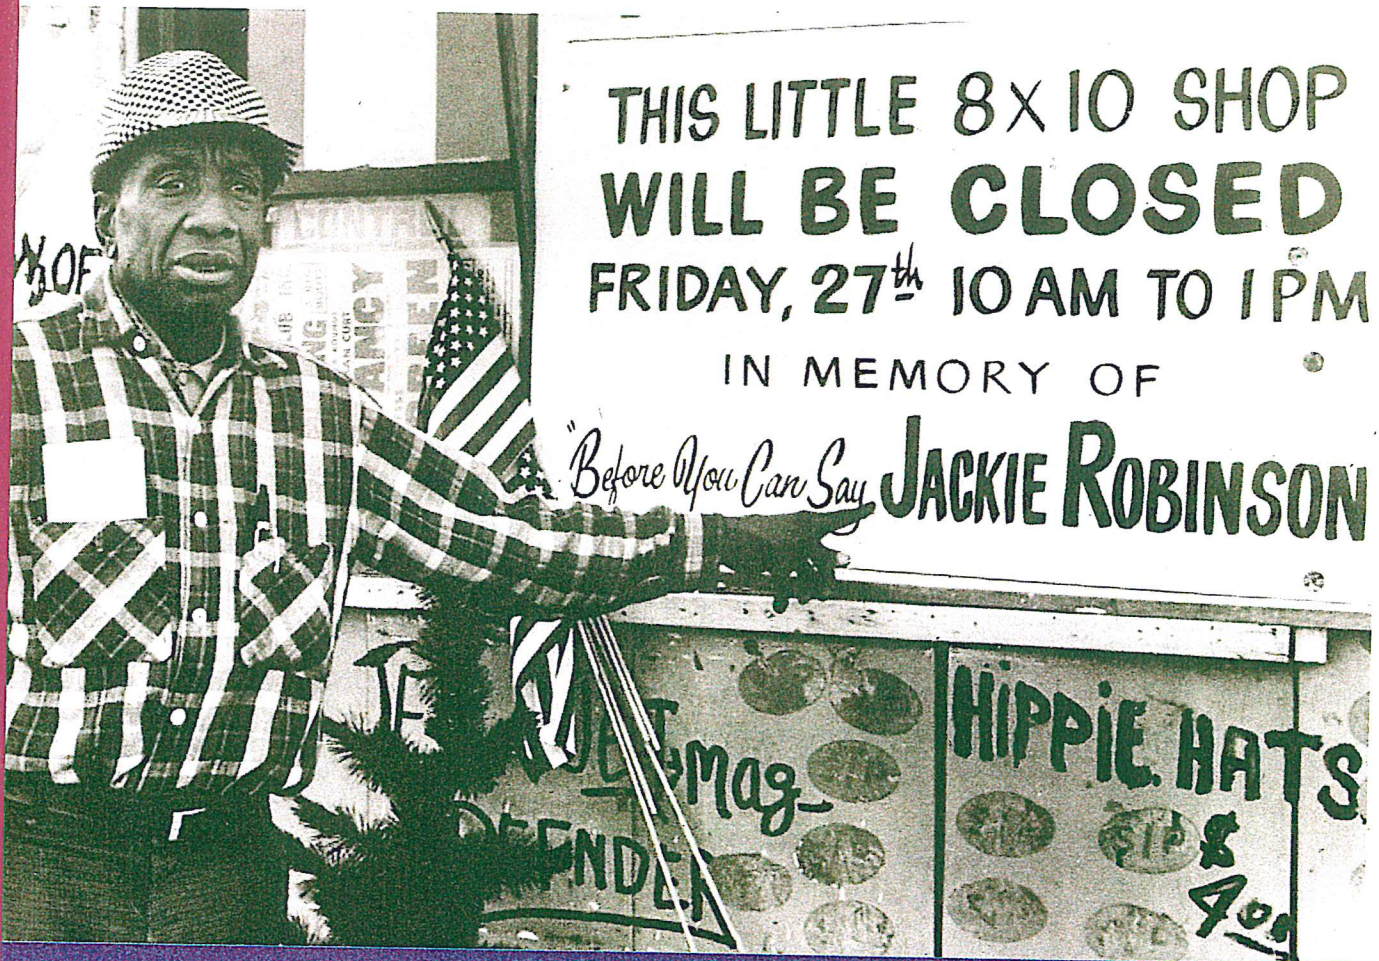 THIS LITTLE 8 X 10 SHOP
WILL BE CLOSED
FRIDAY, 27th 10 AM TO 1 PM
IN MEMORY OF
"Before You Can Say JACKIE ROBINSON
½ OF
JET mag-
DEFENDER
HIPPIE HATS
$
4.00